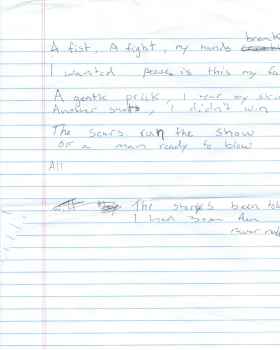 break
A fist, A fight, my hands
I wanted peace is this my fa
A gentle prick, I wear my ski
Another shot, I didn't win
The scars run the show
of a man ready to blow
All
The storys been tol
I have been
never